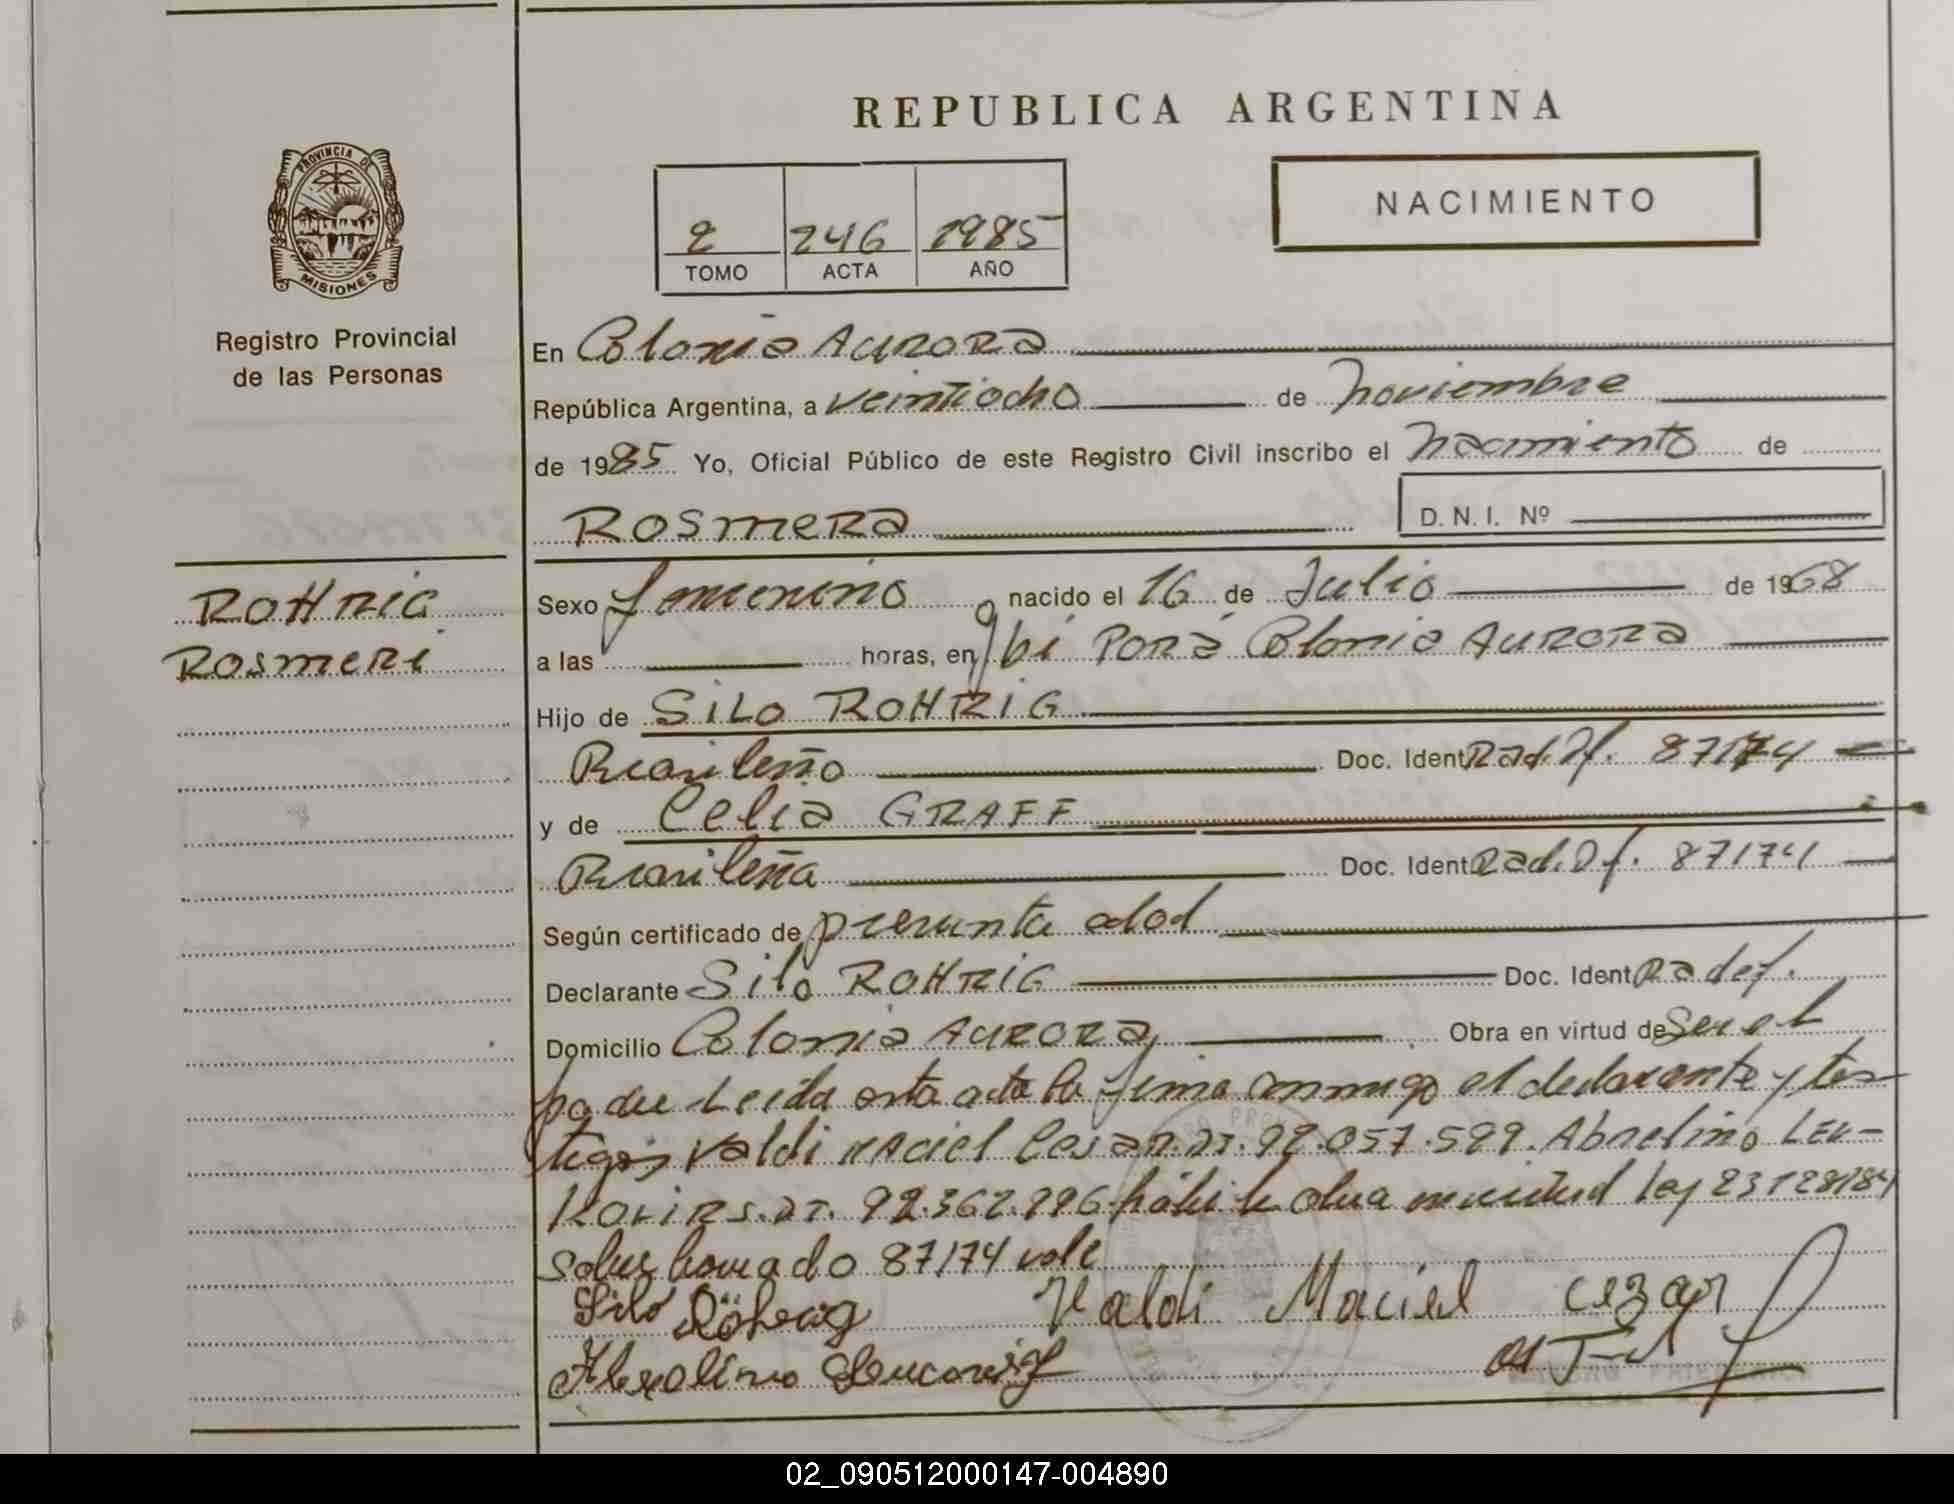 REPUBLICA ARGENTINA
PROVINCIA DE
MISIONES
Registro Provincial
de las Personas
2 246 1985
TOMO ACTA AÑO
NACIMIENTO
En Colonia Aurora
República Argentina, a veintiocho de noviembre
de 1985 Yo, Oficial Público de este Registro Civil inscribo el nacimiento de
Rosmera
D. N. I. Nº
ROHRIG
Rosmeri
Sexo femenino nacido el 16 de Julio de 1968
a las horas, en Ibi Porá Colonia Aurora
Hijo de Silo ROHRIG
Brasileño Doc. Ident Rad. Df. 87174
y de Celia GRAFF
Brasileña Doc. Ident Rad. Df. 87174
Según certificado de presunta edad
Declarante Silo ROHRIG Doc. Ident Ra def.
Domicilio Colonia Aurora Obra en virtud de Ser el
padre Leída esta acta la firma conmigo el declarante y tes
tigos Valdi Maciel Cesar. DI. 92.057.599. Abrelino Leu-
DI. 92.362.296 obra en virtud ley 23128/84
sobre borrado 87174 vale
Silo Röhrig Valdi Maciel Cezar
02_090512000147-004890